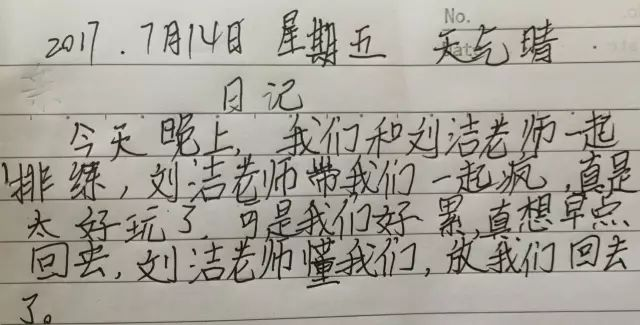 No.
2017.7月14日 星期五 天气晴
日记
今天晚上,我们和刘洁老师一起
排练,刘洁老师带我们一起疯,真是
太好玩了,可是我们好累,真想早点
回去,刘洁老师懂我们,放我们回去
了。